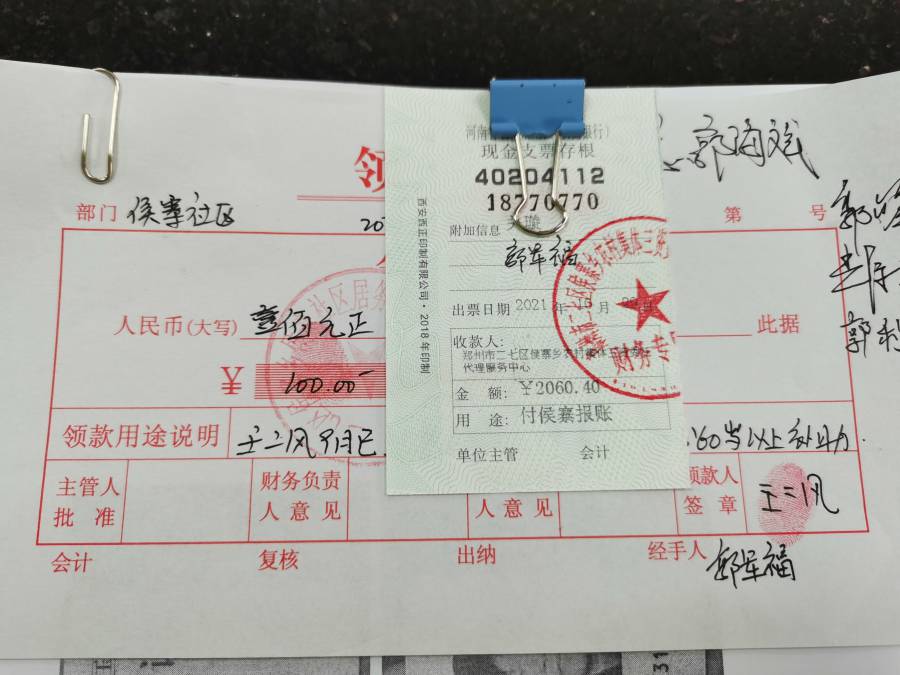 现金支票存根
40204112
18770770
附加信息
郭军福
出票日期 2021 年 10 月
收款人：
郑州市二七区侯寨乡农村集体三资
代理服务中心
金 额：￥2060.40
用 途：付侯寨报账
单位主管 会计
西安西正印制有限公司·2018年印制
财务专
领
部门 侯寨社区
第 号
人民币(大写) 壹佰元正
此据
￥ 100.00
领款用途说明 王二风 9月已
60岁以上补助
主管人
批 准
财务负责
人 意 见
人 意 见
领款人
签 章
王二风
会计 复核 出纳 经手人 郭军福